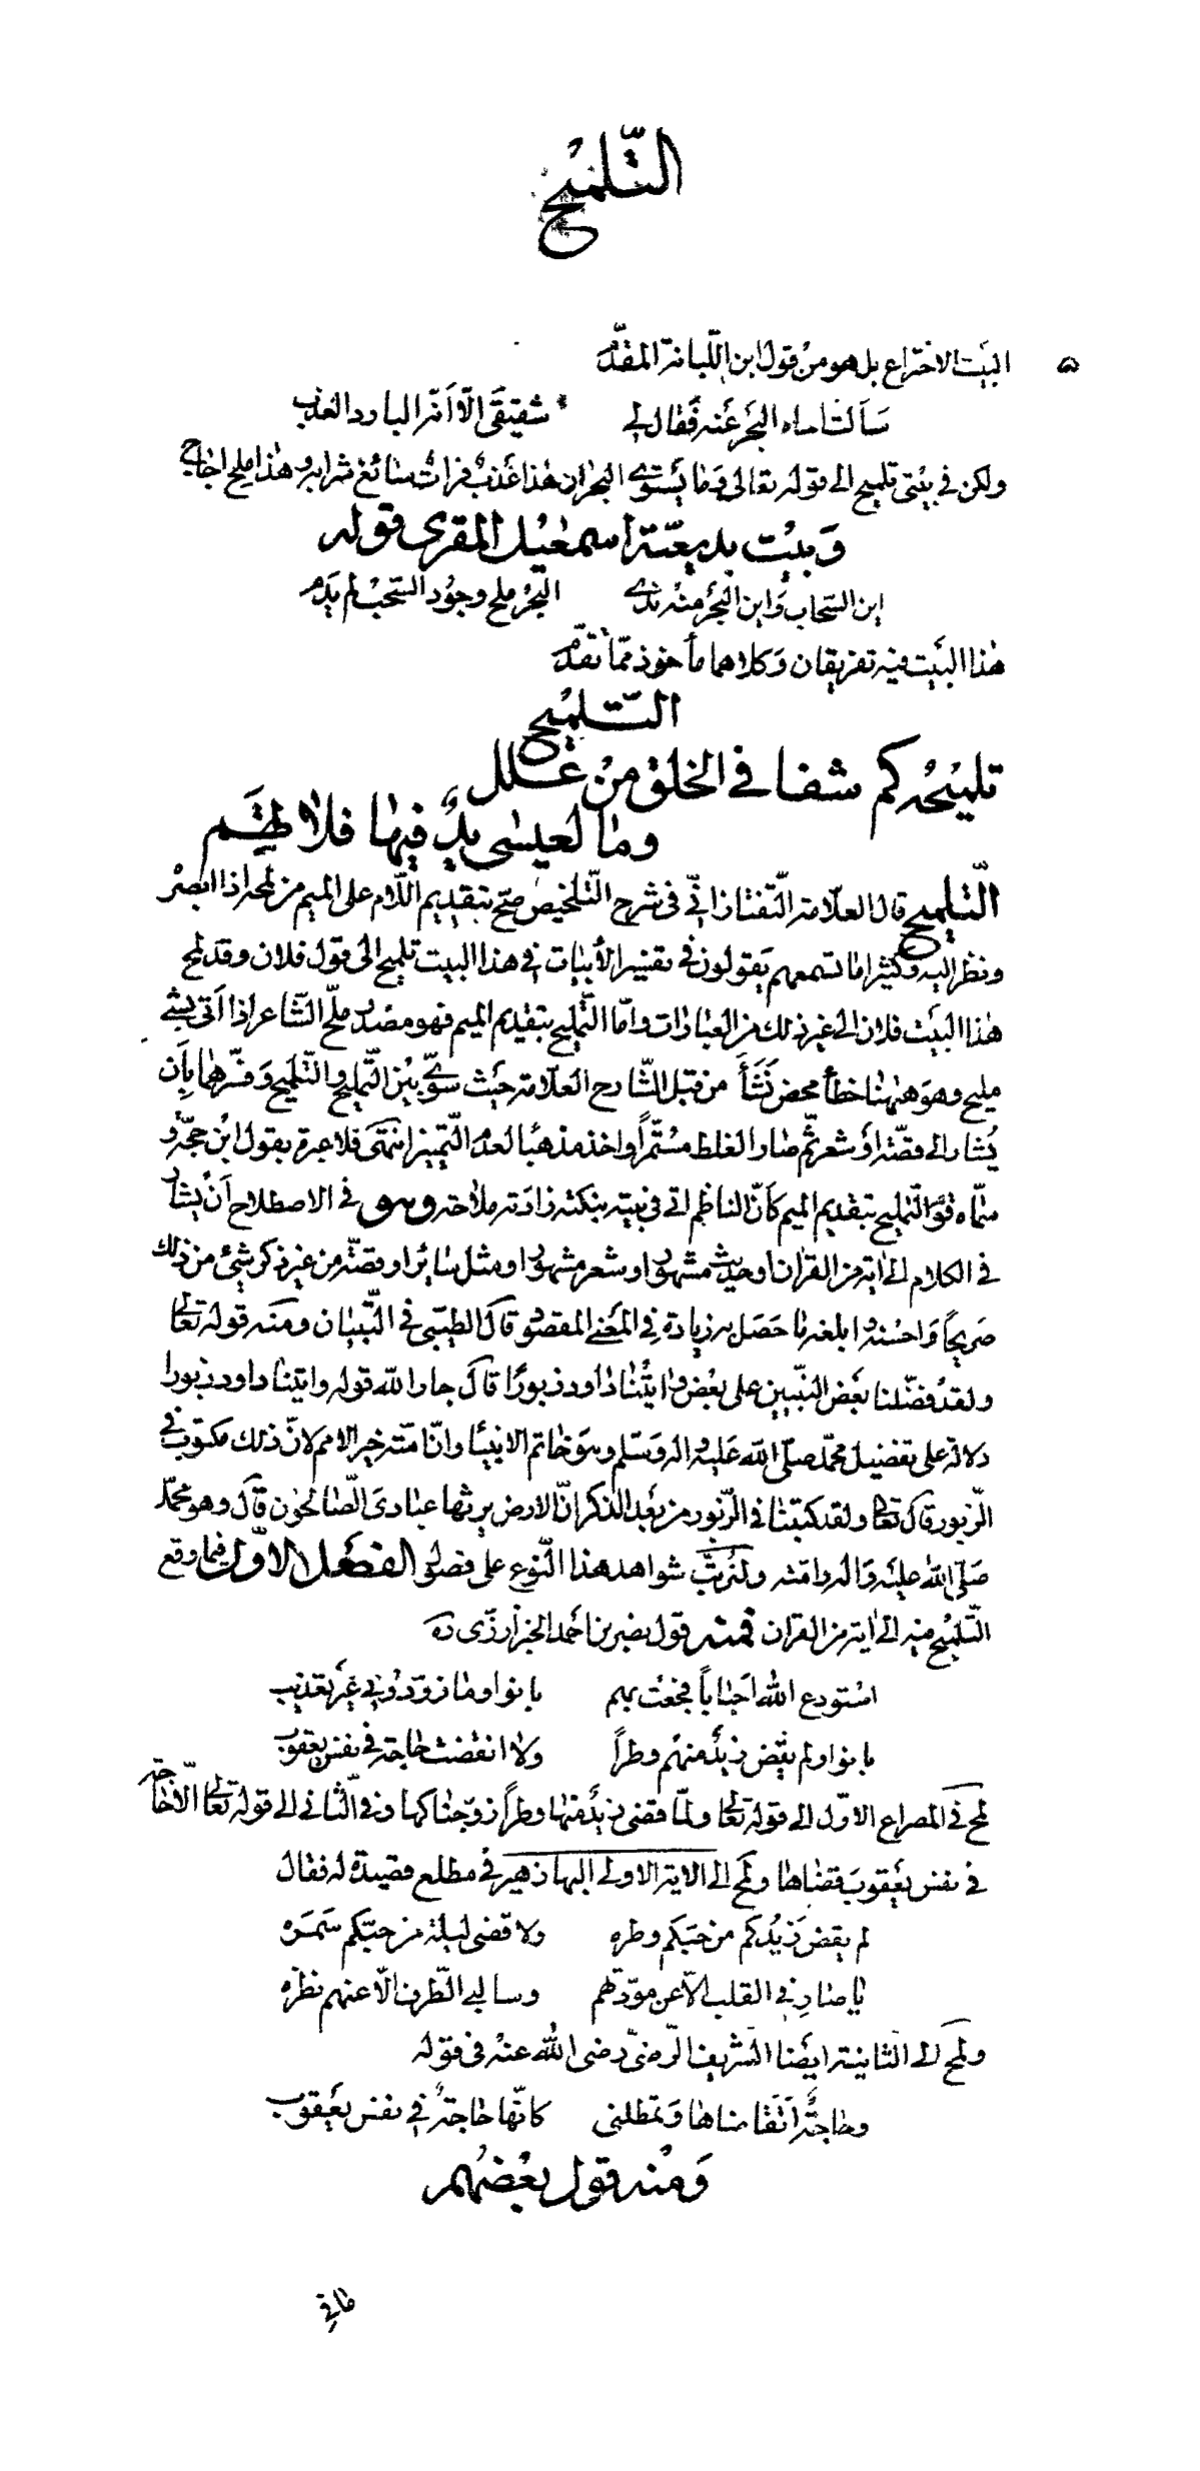 التلميح
البيت الاختراع بل هو من قول ابن اللبانة المقدم
سَألت اساه البحر عنه فقال لي * شقيقي الّا أنه البارد العذب
ولكن في بيتي تلميح الى قوله تعالى وما يستوي البحران هذا عذب فرات سائغ شرابه وهذا ملح اجاج
وَبيْت بديعيّة اسمعيل المقري قوله
اين السّحاب وَاين البحر منه ندى البحر ملح وجود السّحب لم يدم
هذا البيت فيه تفريقان وَكلاهما مأخوذ ممّا تقدّم
التّلميح
تلميحه كم شفا في الخلق من علل
وما لعيسى يدٌ فيها فلا تهم
التّلميح قال العلّامة التّفتازانيّ في شرح التّلخيص صحّ بتقديم اللّام على الميم من لمحه اذا ابصرْ
ونظر اليه وكثيرا ما تسمعهم يَقولون في تفسير الأبيات في هذا البيت تلميح الى قول فلان وقد لمح
هذا البيت فلان الى غير ذلك من العبارات وامّا التّمليح بتقديم الميم فهو مصدر ملّح الشّاعر اذا اَتى بشئ
مليح وهوَ ههنا خطأ محض نَشَأَ من قبل الشّارح العلّامة حيث سوّى بين التّمليح والتّلميح وَفسّرهما بِأَن
يُشار الى قصّة أو شعر ثمّ صار الغلط مستمّراً واخذ مذهبا لعدم التّمييز انتهى فلا عبرة بقول ابن حجّة و
سمّاه قوم التّمليح بتقديم الميم كَأنّ الناظم اتى في بيته بنكتة زادته ملاحة وهو في الاصطلاح أنْ يشار
في الكلام الى اية من القران او حديث مشهور او شعر مشهور او مثل سائر او قصّة من غير ذكر شئ من ذلك
صَريحاً وَاحسنه وابلغه ما حَصَل به زيادة في المَعنى المقصود قال الطيّبي في التّبيان ومنه قوله تعالى
ولقدْ فضّلنا بعَض النّبيين على بعْض واتيْنا داود زبورًا قال جار الله قوله واتينا داود زبورا
دلالة على تفضيل محمّد صلّى الله عَليه واله وَسَلم وهوَ خاتم الانبيَا وانّ امّته خير الامم لانّ ذلك مكتوب في
الّزبور قال تعالى ولقد كتبنا في الزّبور من بعد الذكر انّ الارض يرثها عبادىَ الصّالحون قال وهو محمّد
صَلّى الله عليه وَاله وامّته ولنُرتّب شواهد هذا النّوع على فصول الفصل الاوّل فيما وقع
التّلميْح فيه الى اية من القران فمنه قول نصر بن احمد الخبزارزّى ره
استودع الله احباباً فجعت بهم بانوا وما زوّدوني غير تعذيب
بانوا ولم يقض زيد منهم وطراً ولا انقضت حاجة في نفس يعقوب
لمح في المصراع الاوّل الى قوله تعالى ولمّا قضى زيد منها وطراً زوّجناكها وفي الثّاني الى قوله تعالى الّا حاجة
في نفس يَعقوبَ قضاها ولمح الى الاية الاولى البها زهير في مطلع قصيدة له فقال
لم يقض زيدكم من حبّكم وطره ولا قضى ليله من حبّكم سَمره
يا صارفي القلب الّا عن مودّتهم وسالبي الطّرف الّا عنهم نظره
ولمح الى الثانية ايضا الشّريف الرّضيّ رضى الله عنه في قوله
وحاجة أتقاضاها وَتمطلنى كانّها حاجة في نفس يَعقوب
وَمنه قول بعْضهم